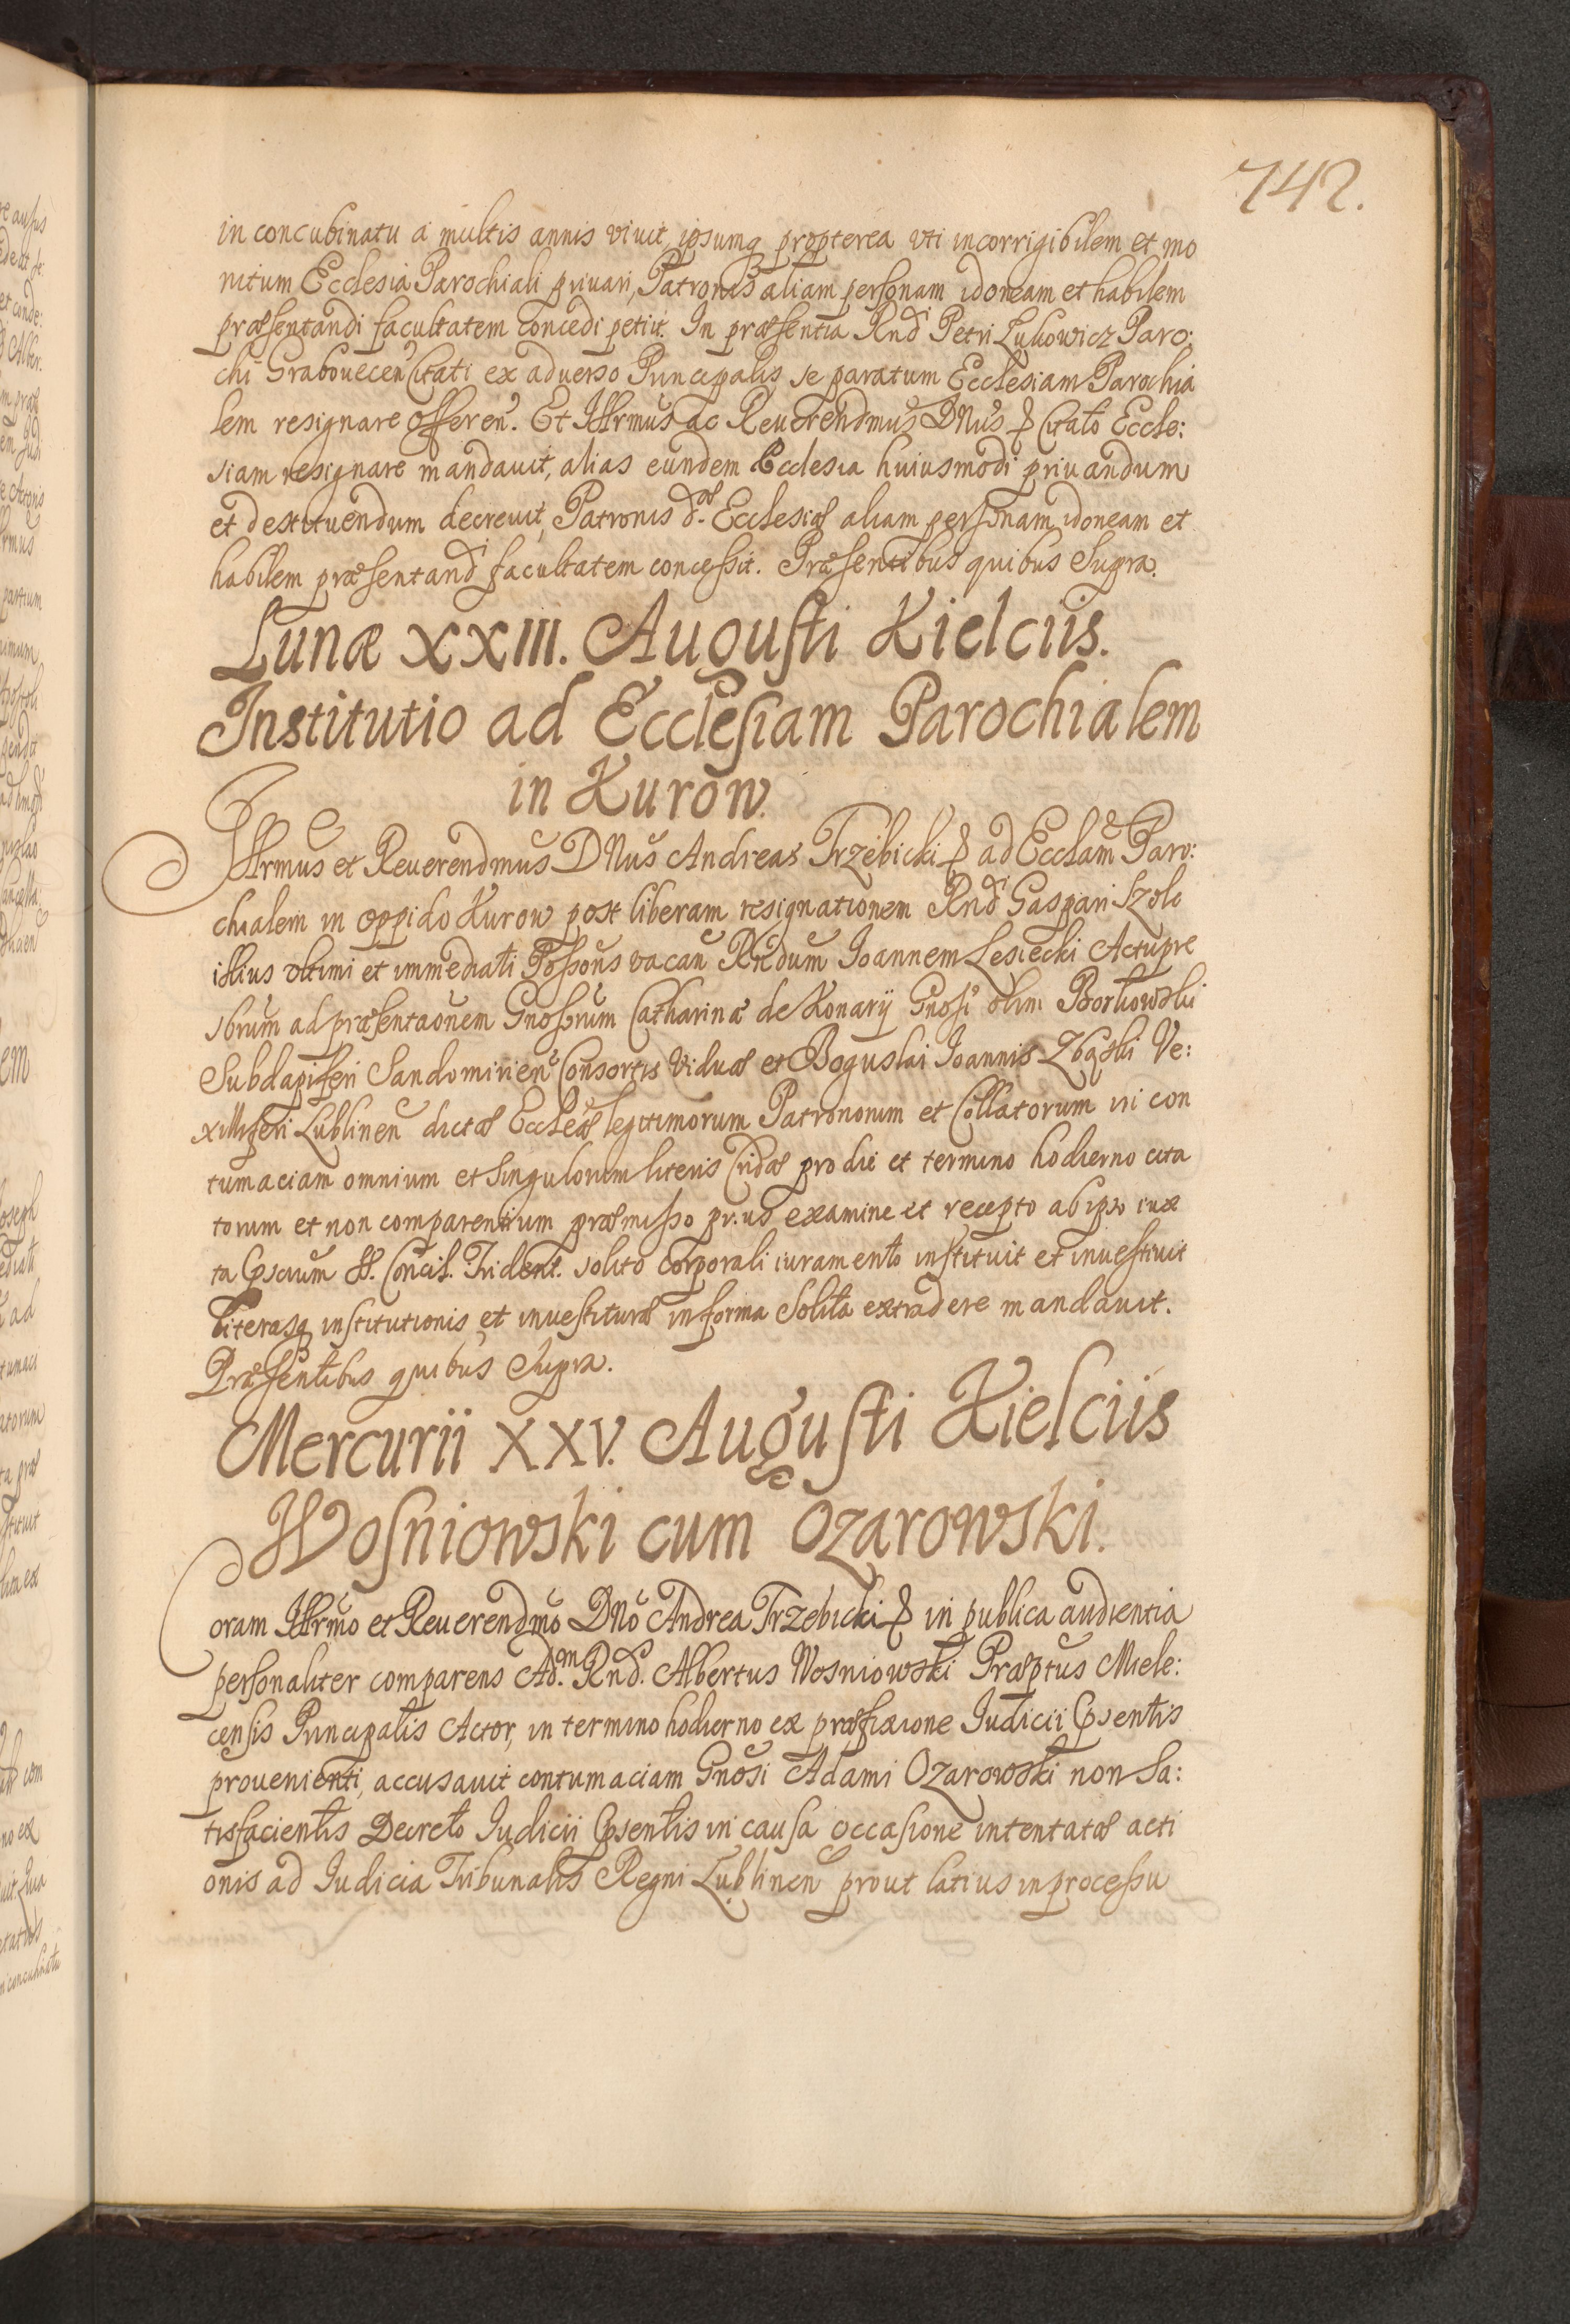 742.
in concubinatu a multis annis viuit, ipsumq propterea vti incorrigibilem et mo
nitum Ecclesia Parochiali priuari, Patronis aliam personam idoneam et habilem
præsentandi facultatem concedi petiit. In præsentia Rndi Petri Lukowicz Paro:
chi Grabouecen Citati ex aduerso Principalis se paratum Ecclesiam Parochia
lem resignare offeren. Et Illrmus ac Reuerendmus DNus & Citato Eccle:
siam resignare mandauit, alias eundem Ecclesia huiusmodi priuandum
et destituendum decreuit, Patronis d.æ Ecclesiæ aliam personam idoneam et
habilem præsentandi facultatem concessit. Præsentibus quibus Supra.
Lunæ XXIII. Augusti Kielciis.
Institutio ad Ecclesiam Parochialem
in Kurow.
Illrmus et Reuerendmus DNus Andreas Trzebicki & ad Ecclam Paro:
chialem in oppido Kurow post liberam resignationem Rndi Gaspari Szolc
illius vltimi et immediati Possoris vacan Rndum Ioannem Lesiecki Actu pre
sbrum ad præsentaonem Gnosorum Catharinæ de Konary Gnosi olim Borkowski
Subdapiferi Sandomirien Consortis Viduæ et Boguslai Ioannis Zbąski Ve:
xilliferi Lublinen dictæ Eccleæ legitimorum Patronorum et Collatorum in con
tumaciam omnium et singulorum literis Cridæ pro die et termino hodierno cita
torum et non comparentium præmisso prius examine et recepto ab ipso iux
ta Cpscrum SS. Concil. Trident. solito corporali iuramento instituit et inuestiuit
Literasq institutionis et inuestituræ in forma Solita extradere mandauit.
Præsentibus quibus Supra.
Mercurii XXV. Augusti Kielciis
Wosniowski cum Ozarowski.
Coram Illrmo et Reuerendmo DNo Andrea Trzebicki & in publica audientia
personaliter comparens Ad.m Rnd. Albertus Wosniowski Præptus Miele:
censis Principalis Actor, in termino hodierno ex præfixione Iudicii Cpsentis
prouenienti, accusauit contumaciam Gnosi Adami Ozarowski non Sa:
tisfacientis Decreto Iudicii Cpsentis in causa occasione intentatæ acti
onis ad Iudicia Tribunalis Regni Lublinen prout latius in processu